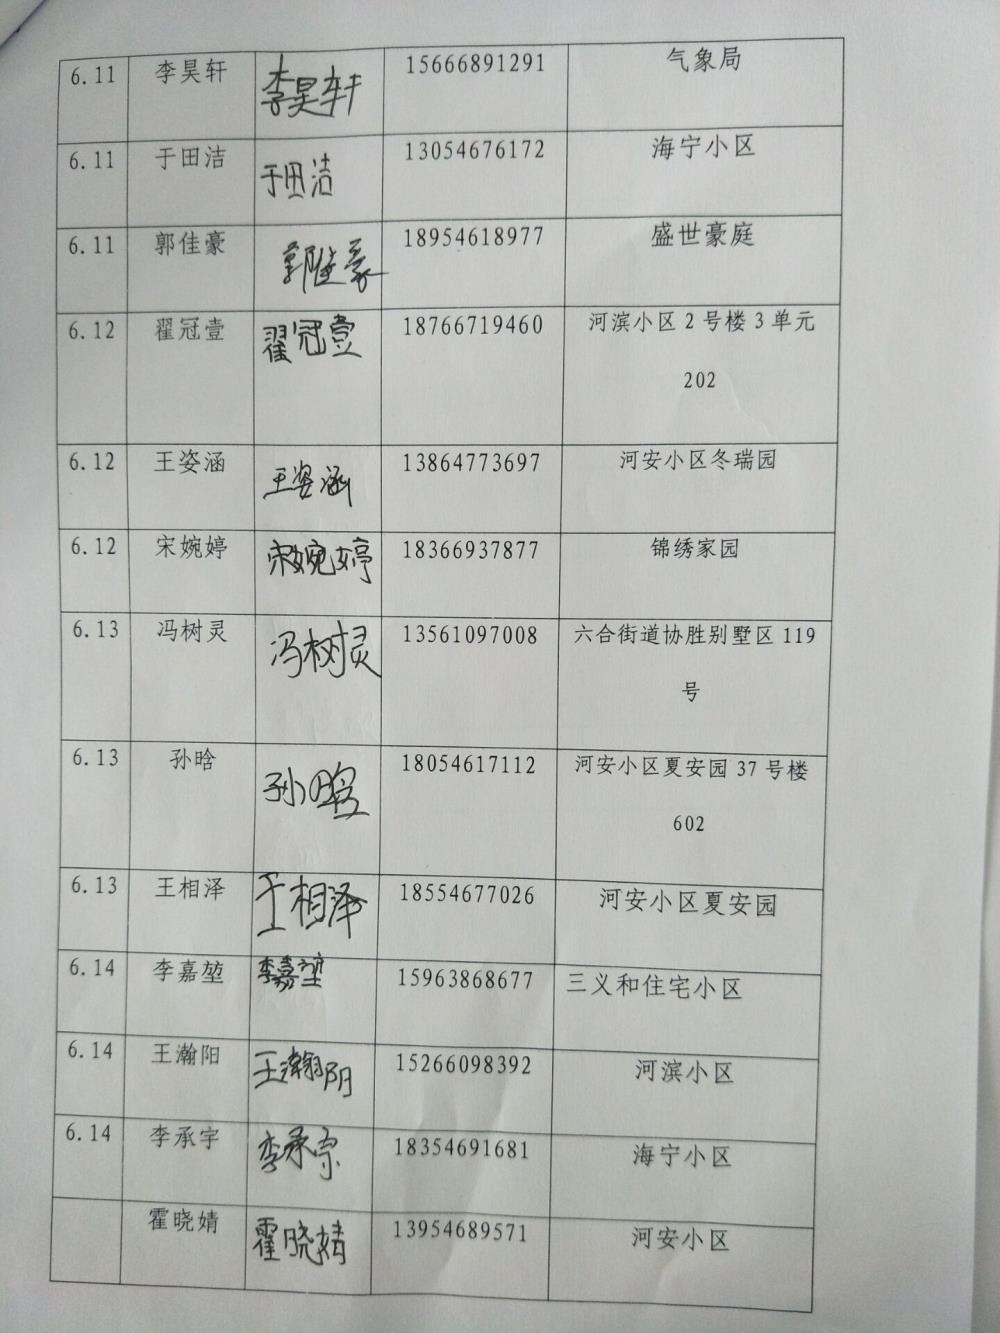 6.11 李昊轩 李昊轩 15666891291 气象局
6.11 于田洁 于田洁 13054676172 海宁小区
6.11 郭佳豪 郭佳豪 18954618977 盛世豪庭
6.12 翟冠壹 翟冠壹 18766719460 河滨小区2号楼3单元
202
6.12 王姿涵 王姿涵 13864773697 河安小区冬瑞园
6.12 宋婉婷 宋婉婷 18366937877 锦绣家园
6.13 冯树灵 冯树灵 13561097008 六合街道协胜别墅区119
号
6.13 孙晗 孙晗 18054617112 河安小区夏安园37号楼
602
6.13 王相泽 王相泽 18554677026 河安小区夏安园
6.14 李嘉堃 李嘉堃 15963868677 三义和住宅小区
6.14 王瀚阳 王瀚阳 15266098392 河滨小区
6.14 李承宇 李承宗 18354691681 海宁小区
霍晓婧 霍晓婧 13954689571 河安小区